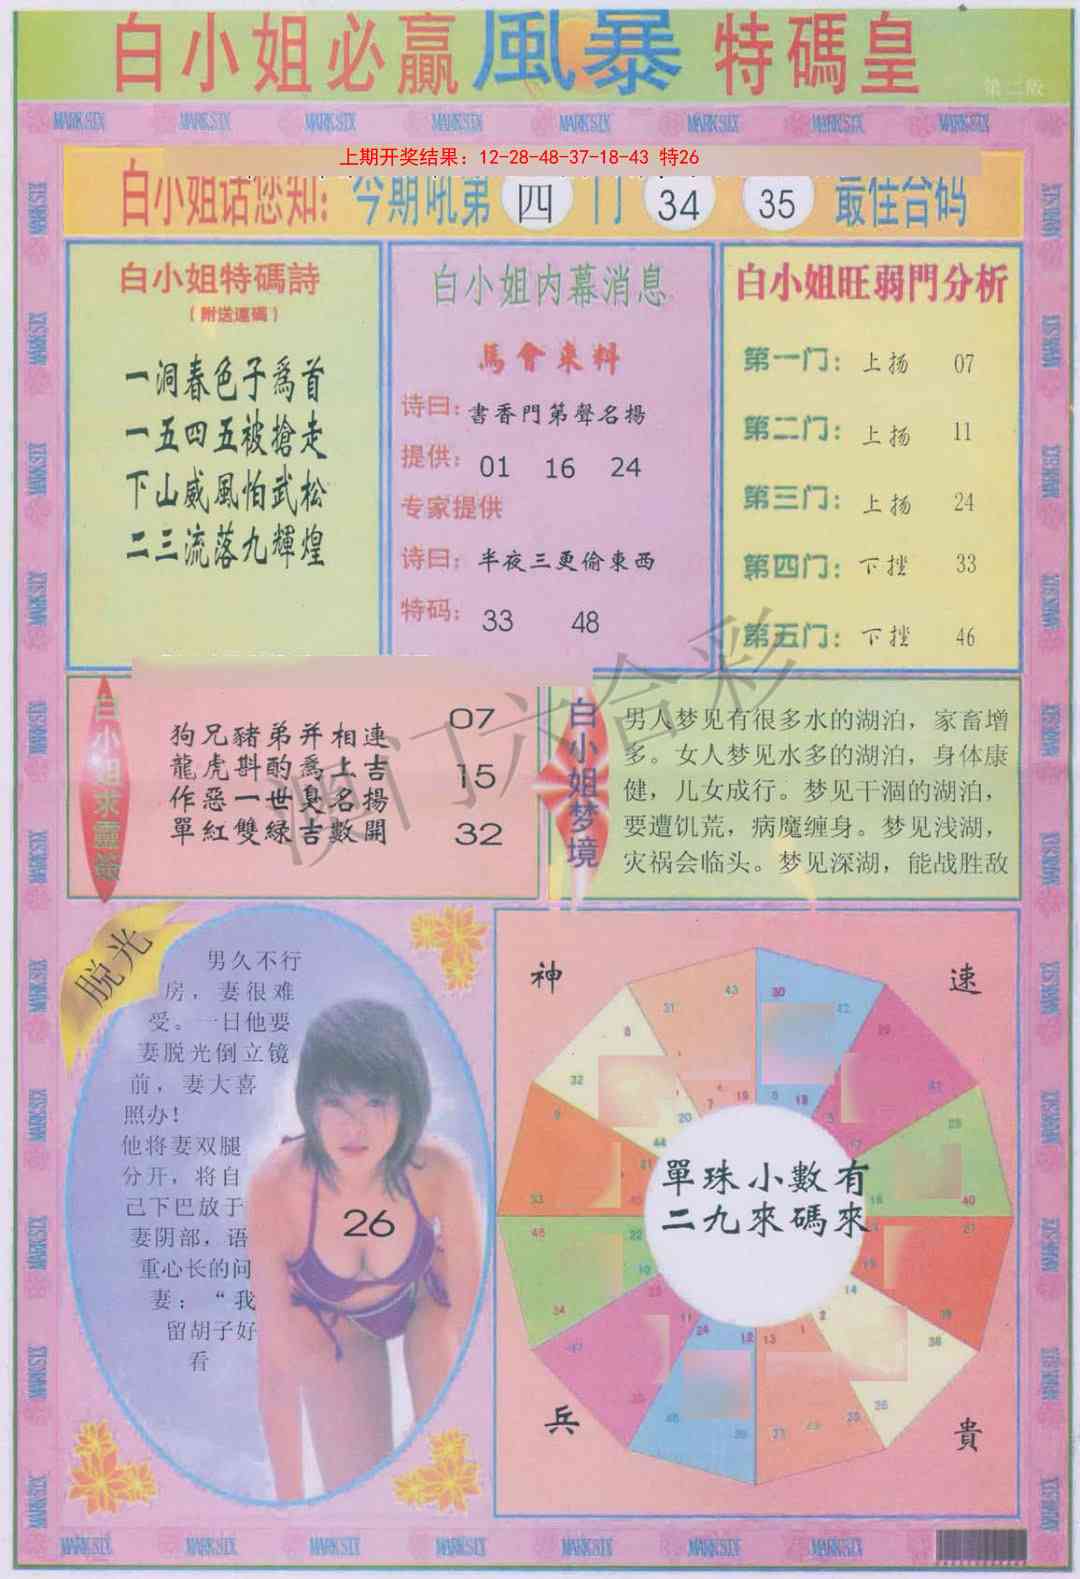 白小姐必贏風暴特碼皇
第二版
MARK SIX MARK SIX MARK SIX MARK SIX MARK SIX MARK SIX MARK SIX MARK SIX
上期开奖结果：12-28-48-37-18-43 特26
白小姐话您知：今期吼第 四 门 34 35 最佳合码
白小姐特碼詩
（附送連碼）
一洞春色子爲首
一五四五被搶走
下山威風怕武松
二三流落九輝煌
白小姐内幕消息
馬會來料
诗曰：書香門第聲名揚
提供：01 16 24
专家提供
诗曰：半夜三更偷東西
特码：33 48
白小姐旺弱門分析
第一门：上扬 07
第二门：上扬 11
第三门：上扬 24
第四门：下挫 33
第五门：下挫 46
白小姐求靈簽
狗兄豬弟并相連
龍虎斟酌喬上吉
作惡一世臭名揚
單紅雙緑吉數開
07
15
32
白小姐梦境
男人梦见有很多水的湖泊，家畜增
多。女人梦见水多的湖泊，身体康
健，儿女成行。梦见干涸的湖泊，
要遭饥荒，病魔缠身。梦见浅湖，
灾祸会临头。梦见深湖，能战胜敌
澳门六合彩
脱光
男久不行
房，妻很难
受。一日他要
妻脱光倒立镜
前，妻大喜
照办！
他将妻双腿
分开，将自
己下巴放于
妻阴部，语
重心长的问
妻：“我
留胡子好
看
26
神
速
兵
貴
單珠小數有
二九來碼來
31 43
30
8
32
20
44
7 19
6 18
40
22
10
34
11
24 12 13 1 2
14
38
MARK SIX MARK SIX MARK SIX MARK SIX MARK SIX MARK SIX MARK SIX